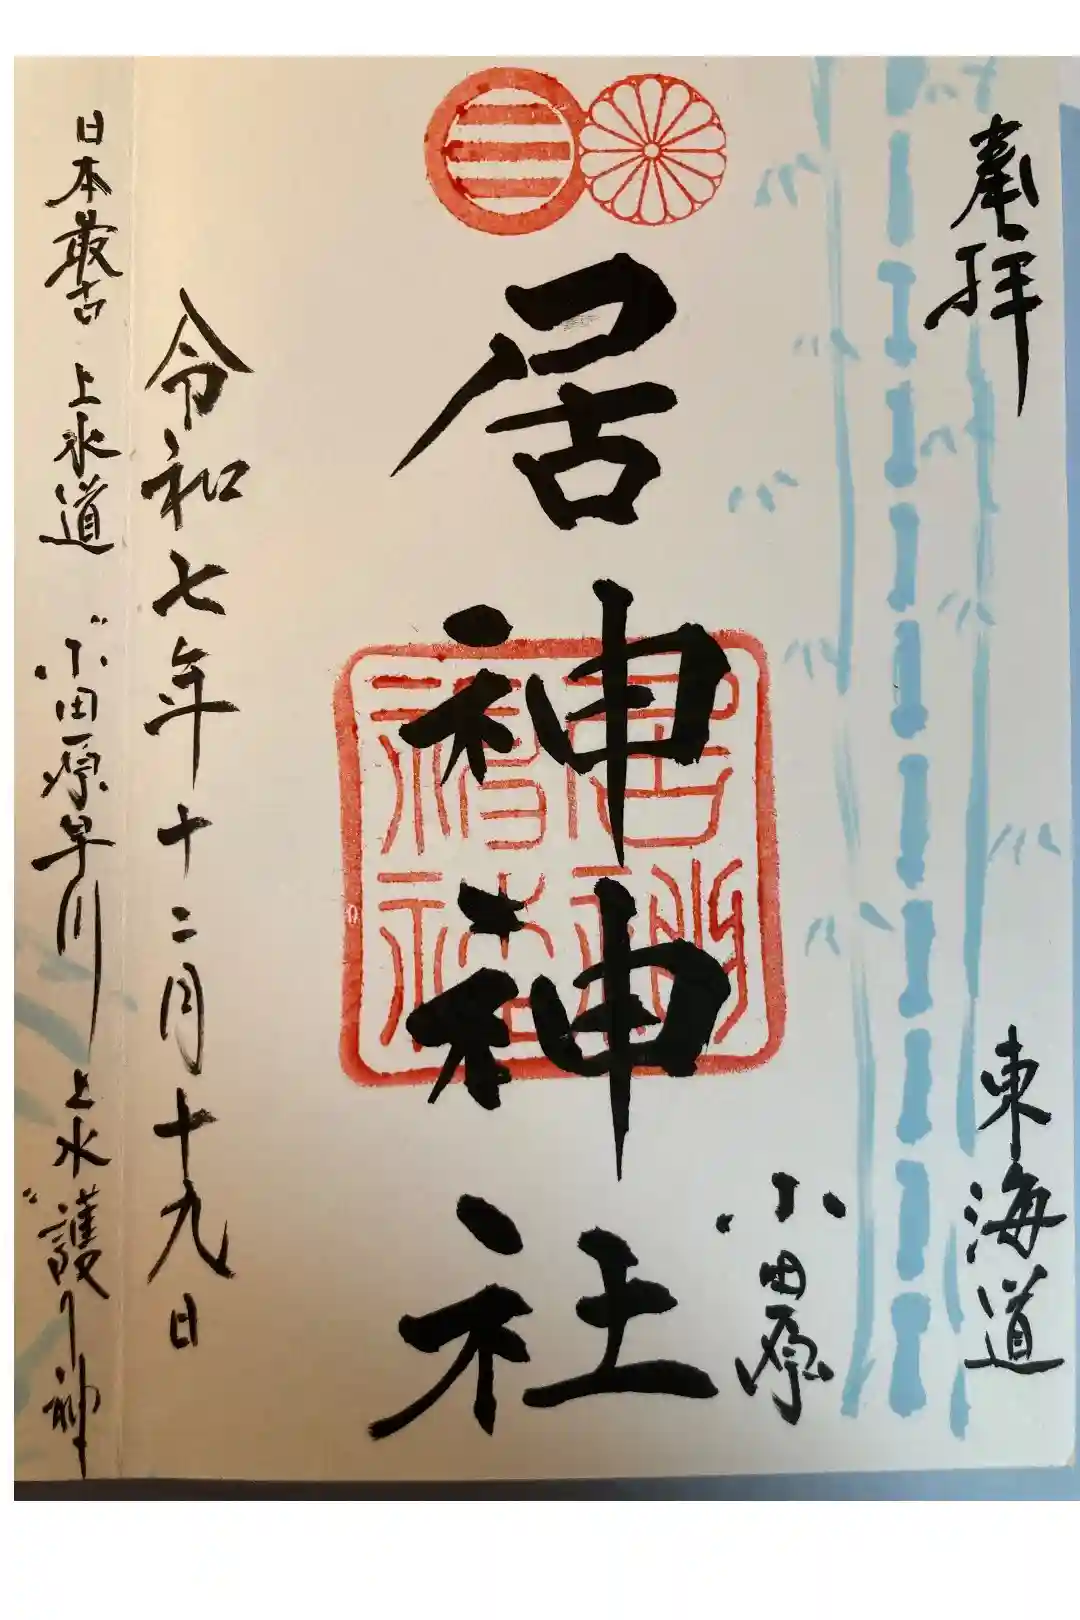 奉拝
東海道
小田原
居神神社
令和七年十二月十九日
日本最古 上水道 "小田原早川 上水" 護り神